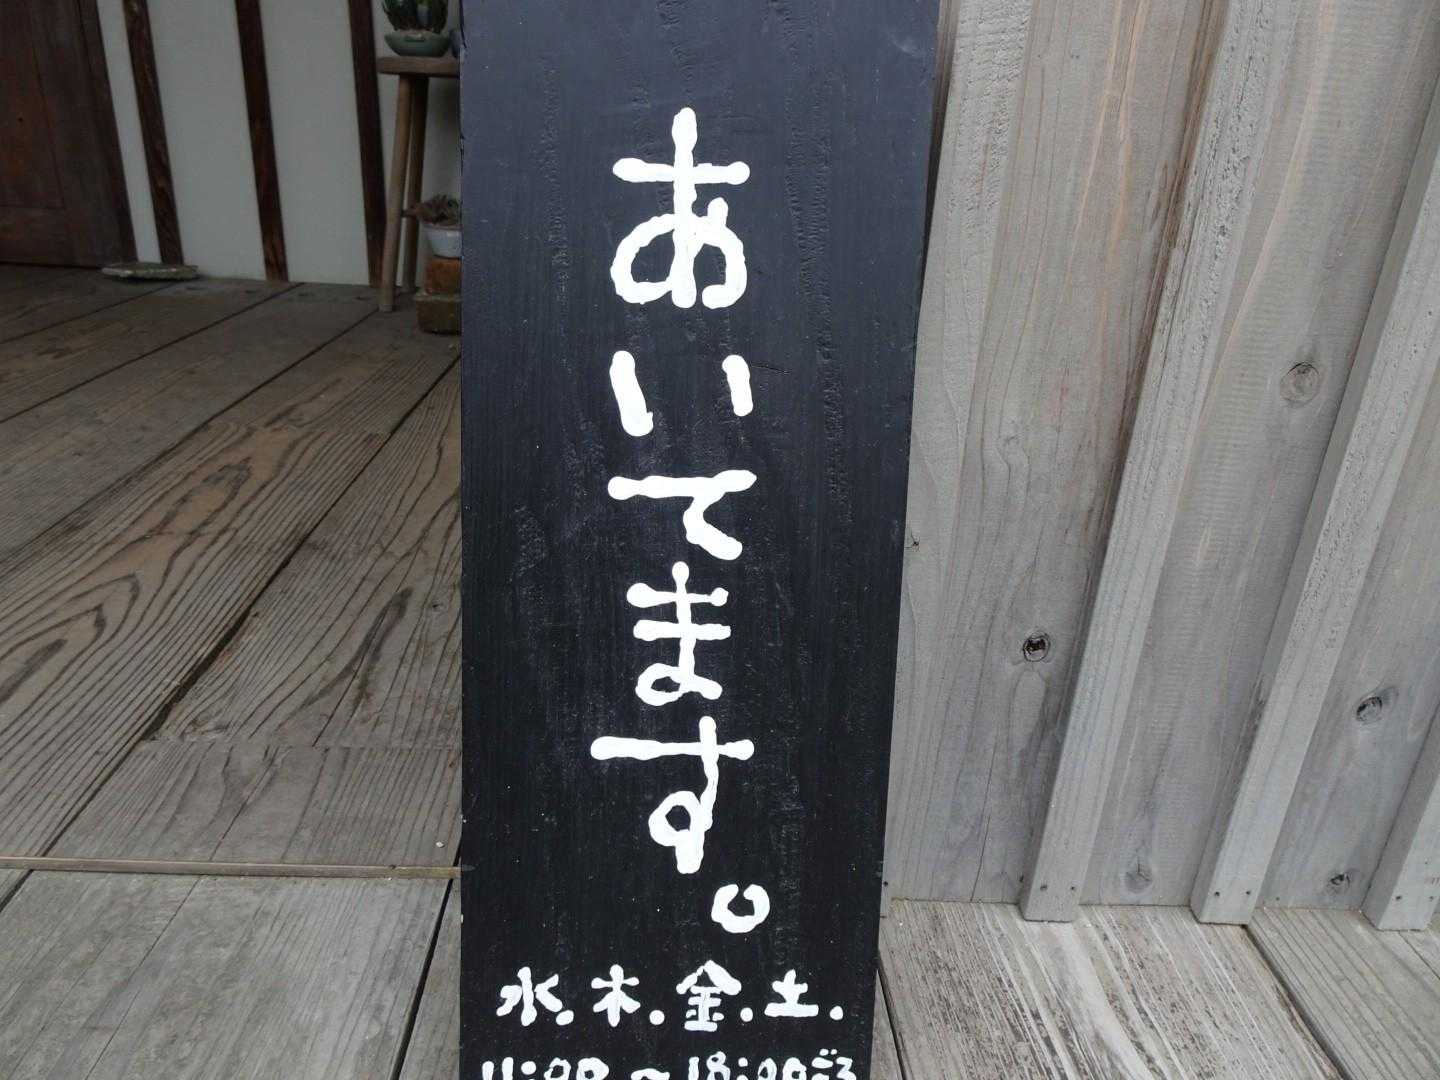 あいてます。
水.木.金.土.
11:00～18:00ごろ